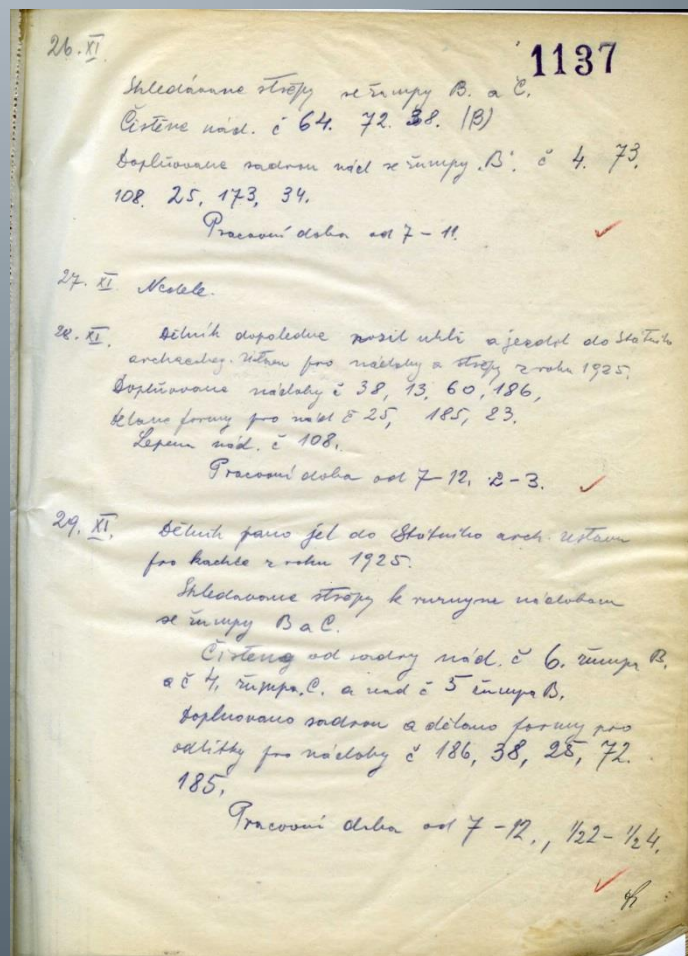 26. XI.
1137
Shledávane střepy ze žumpy B. a Č.
Čistěne nád. č 64. 72. 38. (B)
Doplňovane sadrou nád ze žumpy „B". č 4. 73.
108. 25, 173, 34.
Pracovní doba od 7 – 11.
27. XI. Neděle.
28. XI. Dělník dopoledne nosil uhlí a jezdil do Státního
archaeolog. ústavu pro nádoby a střepy z roku 1925.
Doplňovane nádoby č 38, 13, 60, 186,
dělane formy pro nád č 25, 185, 23.
Lepena nád. č 108.
Pracovní doba od 7–12, 2–3.
29. XI. Dělník pano jel do Státního arch. ústavu
pro kachle z roku 1925.
Shledavane střepy k nádobam
ze žumpy B a C.
Čisteno od sadry nád. č 6. žumpa B.
a č 4. žumpa. C. a nád č 5 žumpa B.
Doplnovano sadrou a dělano formy pro
odlitky pro nádoby č 186, 38, 25, 72.
185,
Pracovní doba od 7 – 12., 1/2 2 – 1/2 4.